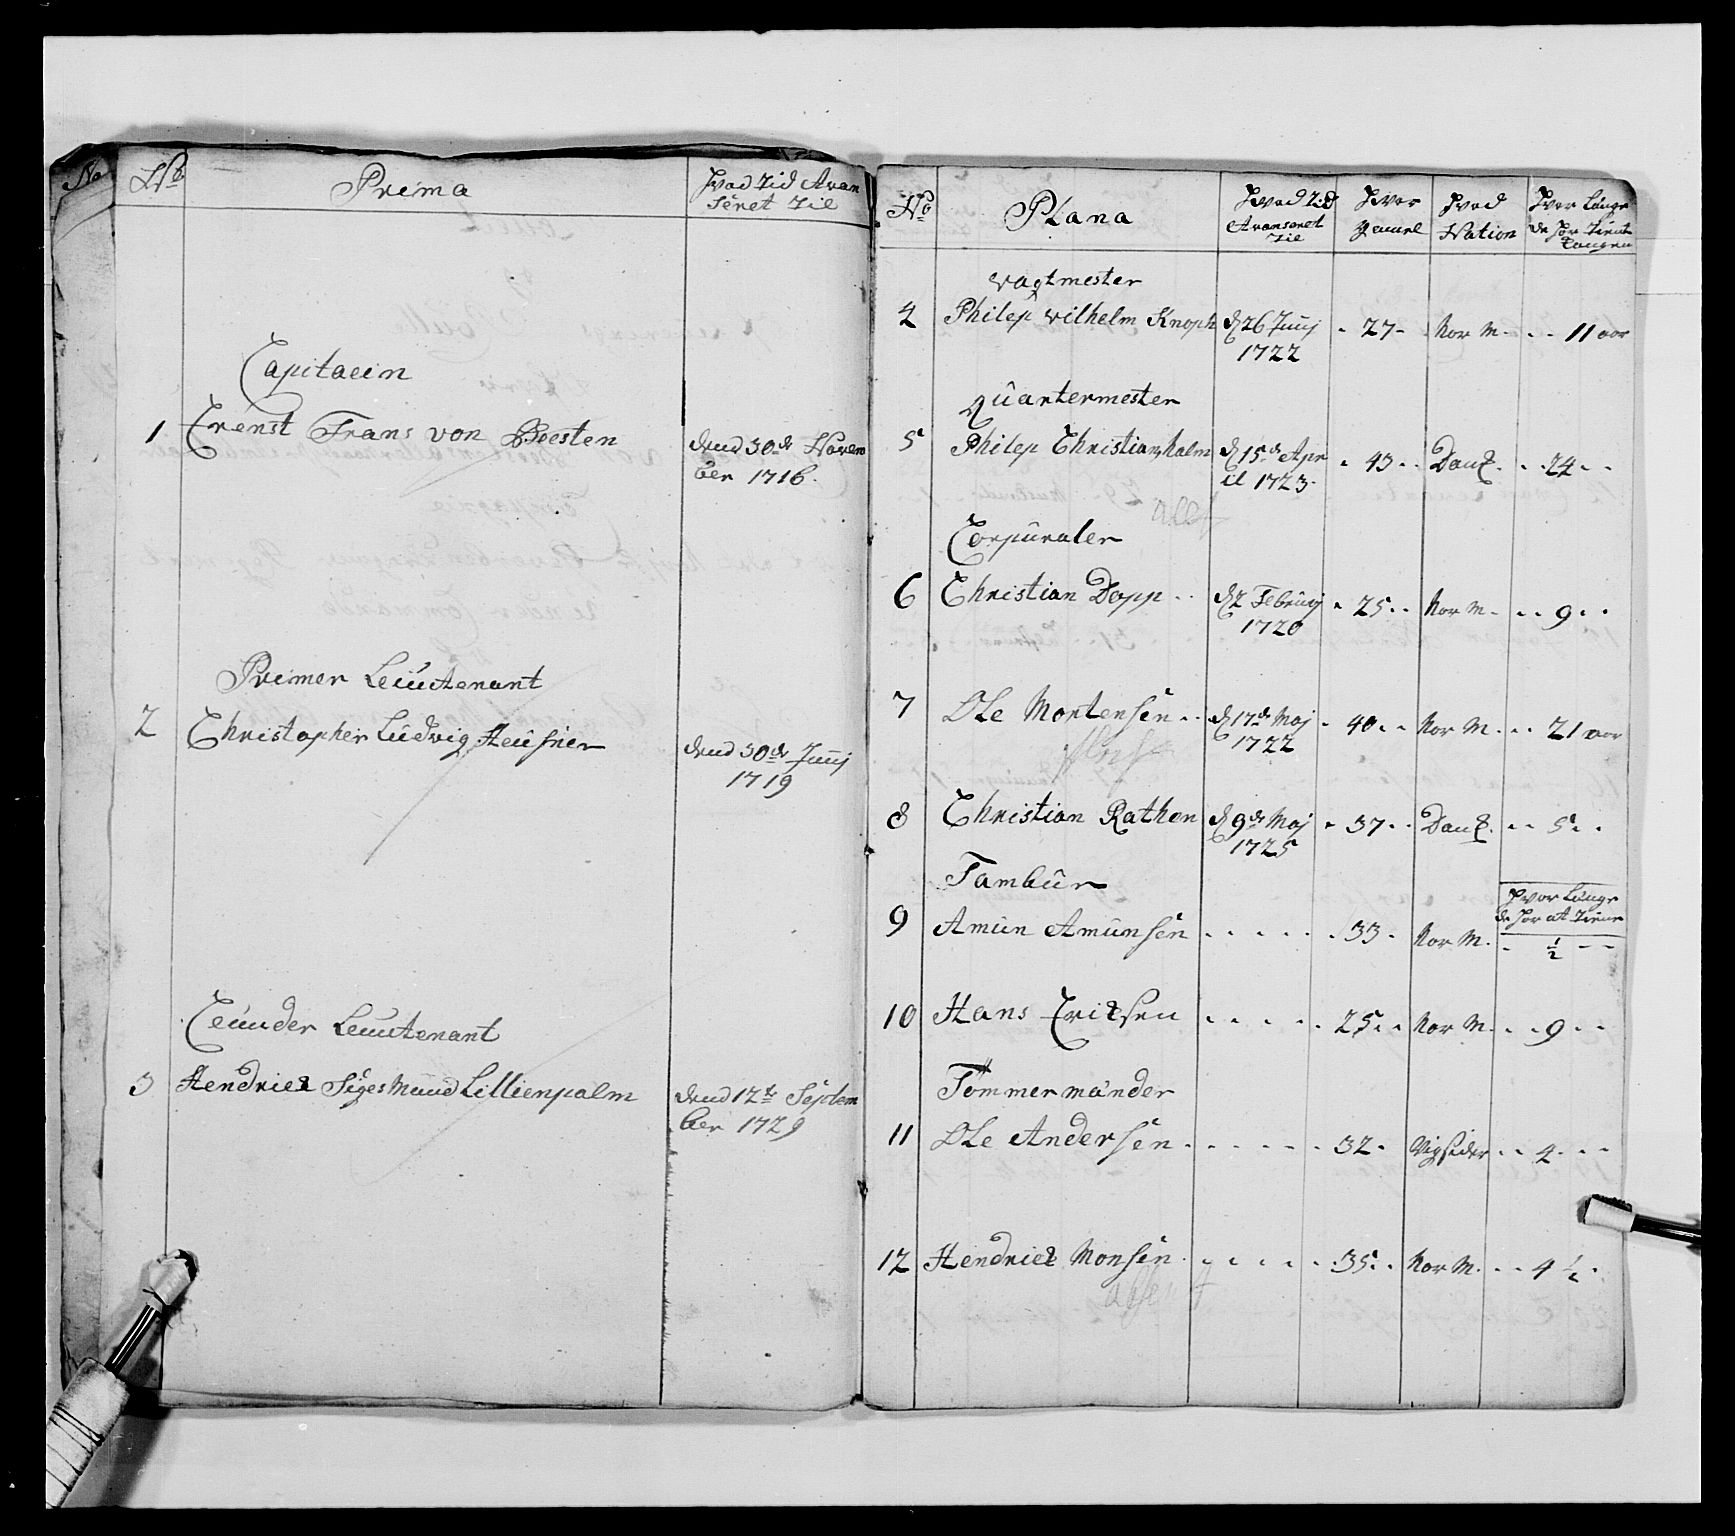 No
No Prima Hvad Tid Avan
seret Til
Capitaein
1 Ernst Frans von Beesten dend 30de Novem
ber 1716.
Primer Leiutenant
2 Christopher Ludvig Heusner dend 30de Junij
1719
Ceunder Leuutenant
3 Hendrich Sigesmund Lillienpalm dend 12te Septem
ber 1729
No Plana Hvad Tid Avanseret Til Hvor Gamel Hvad Nation Hvor Længe de har tient Kongen
Vagtmester
4 Philep Wilhelm Knoph d 26 Junij - 27 - Nor M - - 11 aar
1722
Quartermester
5 Philep Christianholm d 15de Apr - 43 - - Dansk - - 24 - -
il 1723
Corpuraler
6 Christian Dopp - - d 2 Februij - 25 - - Nor M - - - 9 - -
1720
7 Ole Mortensen - - d 17de Maj - 40 - - Nor M - - - 21 aar
1722
8 Christian Rathen d 9de Maj - 37 - - Dansk - - - 5 - -
1725
Tambur Hvor Længe
de har at tiene
9 Amun Amunsen - - - - - - 33 - Nor M. - 1/2 - -
10 Hans Erichsen - - - - - 25 - - Nor M. - - 9 - -
Tømmermænder
11 Ole Andersen - - - - - - 32 - Vigsider - - 4 - - -
12 Hendrich Monsen - - - - - - 35 - - Nor M. - - 4 1/2 -
absent